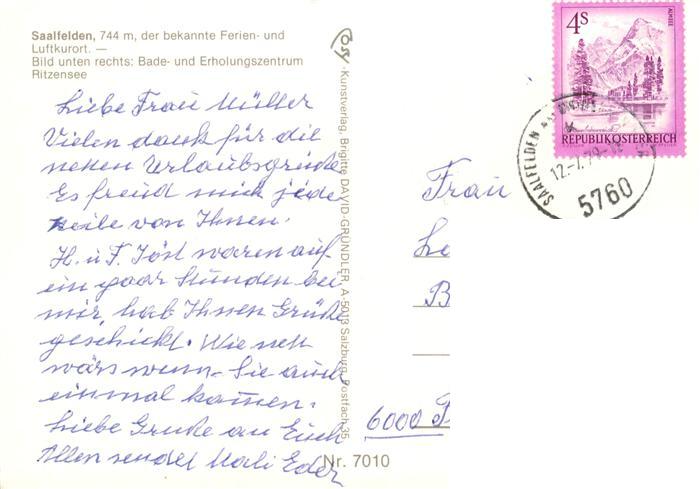 Saalfelden, 744 m, der bekannte Ferien- und
Luftkurort. —
Bild unten rechts: Bade- und Erholungszentrum
Ritzensee
Liebe Frau Müller
Vielen dank für die
netten Urlaubsgrüße
Es freud mich jede
zeile von Ihnen.
H. u F. Jöst waren auf
ein paar Stunden bei
mir, hab Ihnen Grüße
geschickt. Wie nett
wärs wenn Sie auch
einmal kamen.
Liebe Gruße an Euch
Allen sendet Mali Eder
Cosy -Kunstverlag, Brigitte DAVID-GRÜNDLER, A-5013 Salzburg, Postfach 35
Nr. 7010
4S
ALMSEE
REPUBLIK ÖSTERREICH
SAALFELDEN AM
12.-7.79
5760
Frau
Lo
B
6000 F